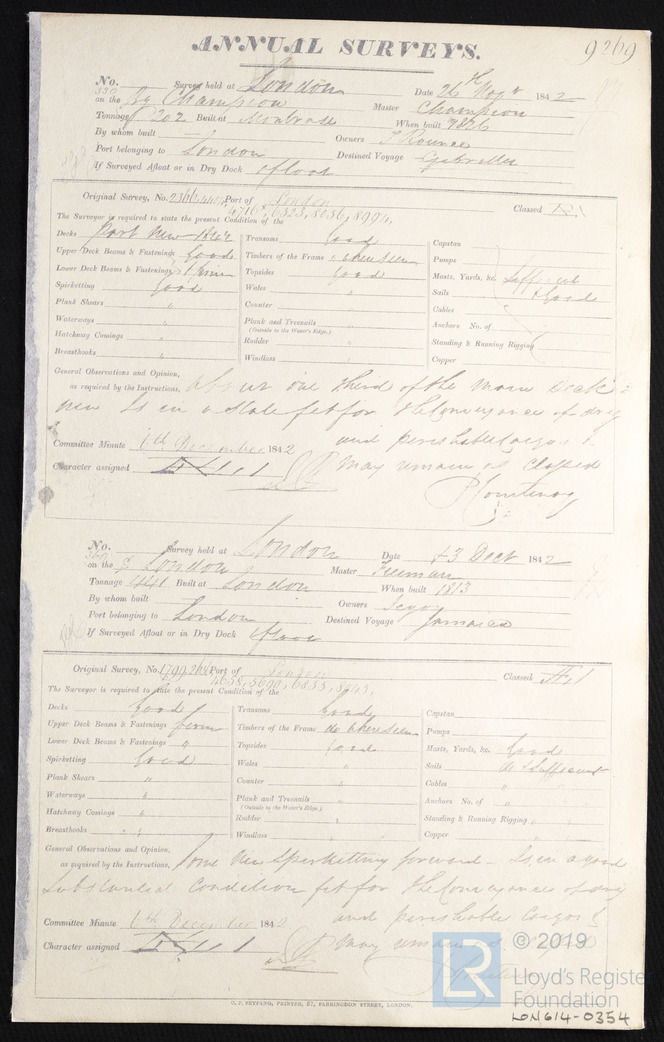 ANNUAL SURVEYS.
9269
No. 350 Survey held at London Date 26th Novr 1842
on the Bg Champion Master Champion
Tonnage 202 Built at Montrose When built 1826
By whom built Owners T Rounce
Port belonging to London Destined Voyage Gibralter
If Surveyed Afloat or in Dry Dock afloat
Original Survey, No. Port of London
4716, 6323, 8036, 8994. Classed
The Surveyor is required to state the present Condition of the
Decks Part New 1842 Transoms Good Capstan
Upper Deck Beams & Fastenings Good Timbers of the Frame where seen Pumps
Lower Deck Beams & Fastenings Firm Topsides Good Masts, Yards, &c. Sufficient
Spirketting Good Wales " Sails Good
Plank Shears " Counter " Cables
Waterways " Plank and Treenails " Anchors No. of
(Outside to the Water's Edge.)
Hatchway Comings " Rudder " Standing & Running Rigging
Breasthooks " Windlass " Copper
General Observations and Opinion,
as required by the Instructions, About one third of the main Deck
new Is in a state fit for the Conveyance of dry
and perishable Cargos &
Committee Minute 6th December 1842
Character assigned may remain as classed
P Courtenay
No. 360 Survey held at London Date 3 Dect 1842
on the S London Master Freeman
Tonnage 441 Built at London When built 1813
By whom built Owners
Port belonging to London Destined Voyage Jamaica
If Surveyed Afloat or in Dry Dock afloat
Original Survey, No. 1799, Port of London Classed
The Surveyor is required to state the present Condition of the
Decks Good Transoms Good Capstan
Upper Deck Beams & Fastenings firm Timbers of the Frame do where seen Pumps
Lower Deck Beams & Fastenings " Topsides Good Masts, Yards, &c. Good
Spirketting Good Wales " Sails do & Sufficient
Plank Shears " Counter " Cables "
Waterways " Plank and Treenails " Anchors No. of "
(Outside to the Water's Edge.)
Hatchway Comings " Rudder " Standing & Running Rigging "
Breasthooks " Windlass " Copper "
General Observations and Opinion,
as required by the Instructions, Some New Spirketting forward - Is in a good
substantial Condition fit for the Conveyance of dry
and perishable cargos &
Committee Minute 6th December 1842
Character assigned may remain as
O. F. SKYPANG, PRINTER, 57, FARRINGDON STREET, LONDON.
LR © 2019
Lloyd's Register
Foundation
LON614-0354